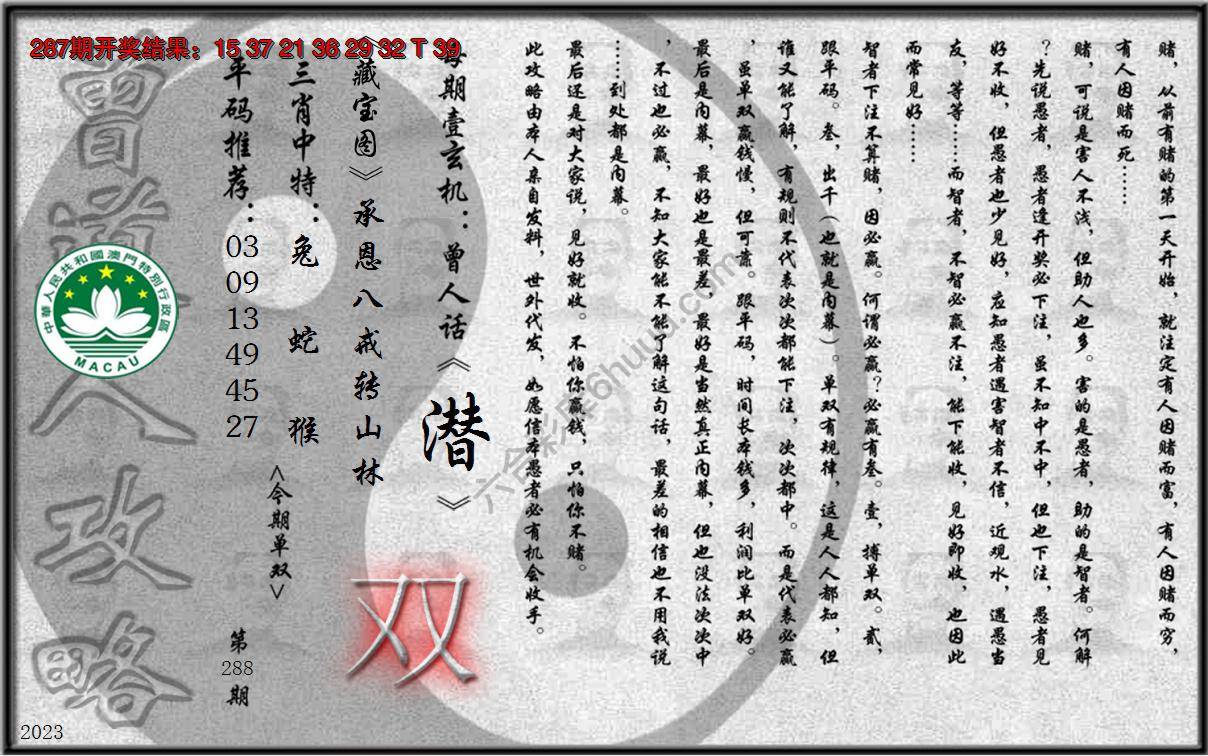 287期开奖结果：15 37 21 36 29 32 T 39
赌，从前有赌的第一天开始，就注定有人因赌而富，有人因赌而穷，
有人因赌而死……
赌，可说是害人不浅，但助人也多。害的是愚者，助的是智者。何解
？先说愚者，愚者逢开奖必下注，虽不知中不中，但也下注，愚者见
好不收，但愚者也少见好，应知愚者遇害智者不信，近观水，遇愚当
友，等等……而智者，不智必赢不注，能下能收，见好即收，也因此
而常见好……
智者下注不算赌，因必赢。何谓必赢？必赢有叁。壹，搏单双。贰，
跟平码。叁，出千（也就是内幕）。单双有规律，这是人人都知，但
谁又能了解，有规则不代表次次都能下注，次次都中。而是代表必赢
，虽单双赢钱慢，但可靠。跟平码，时间长本钱多，利润比单双好。
最后是内幕，最好也是最差，最好是当然真正内幕，但也没法次次中
，不过也必赢，不知大家能不能了解这句话，最差的相信也不用我说
……到处都是内幕。
最后还是对大家说，见好就收。不怕你赢钱，只怕你不赌。
此攻略由本人亲自发料，世外代发，如愿信本愚者必有机会收手。
每期壹玄机：曾人话《潜》
《藏宝图》承恩八戒转山林
双
三肖中特：兔 蛇 猴
<今期单双>
平码推荐：03 09 13 49 45 27
第288期
曾道人攻略
中華人民共和國澳門特別行政區
MACAU
六合彩库6huuu.com
2023